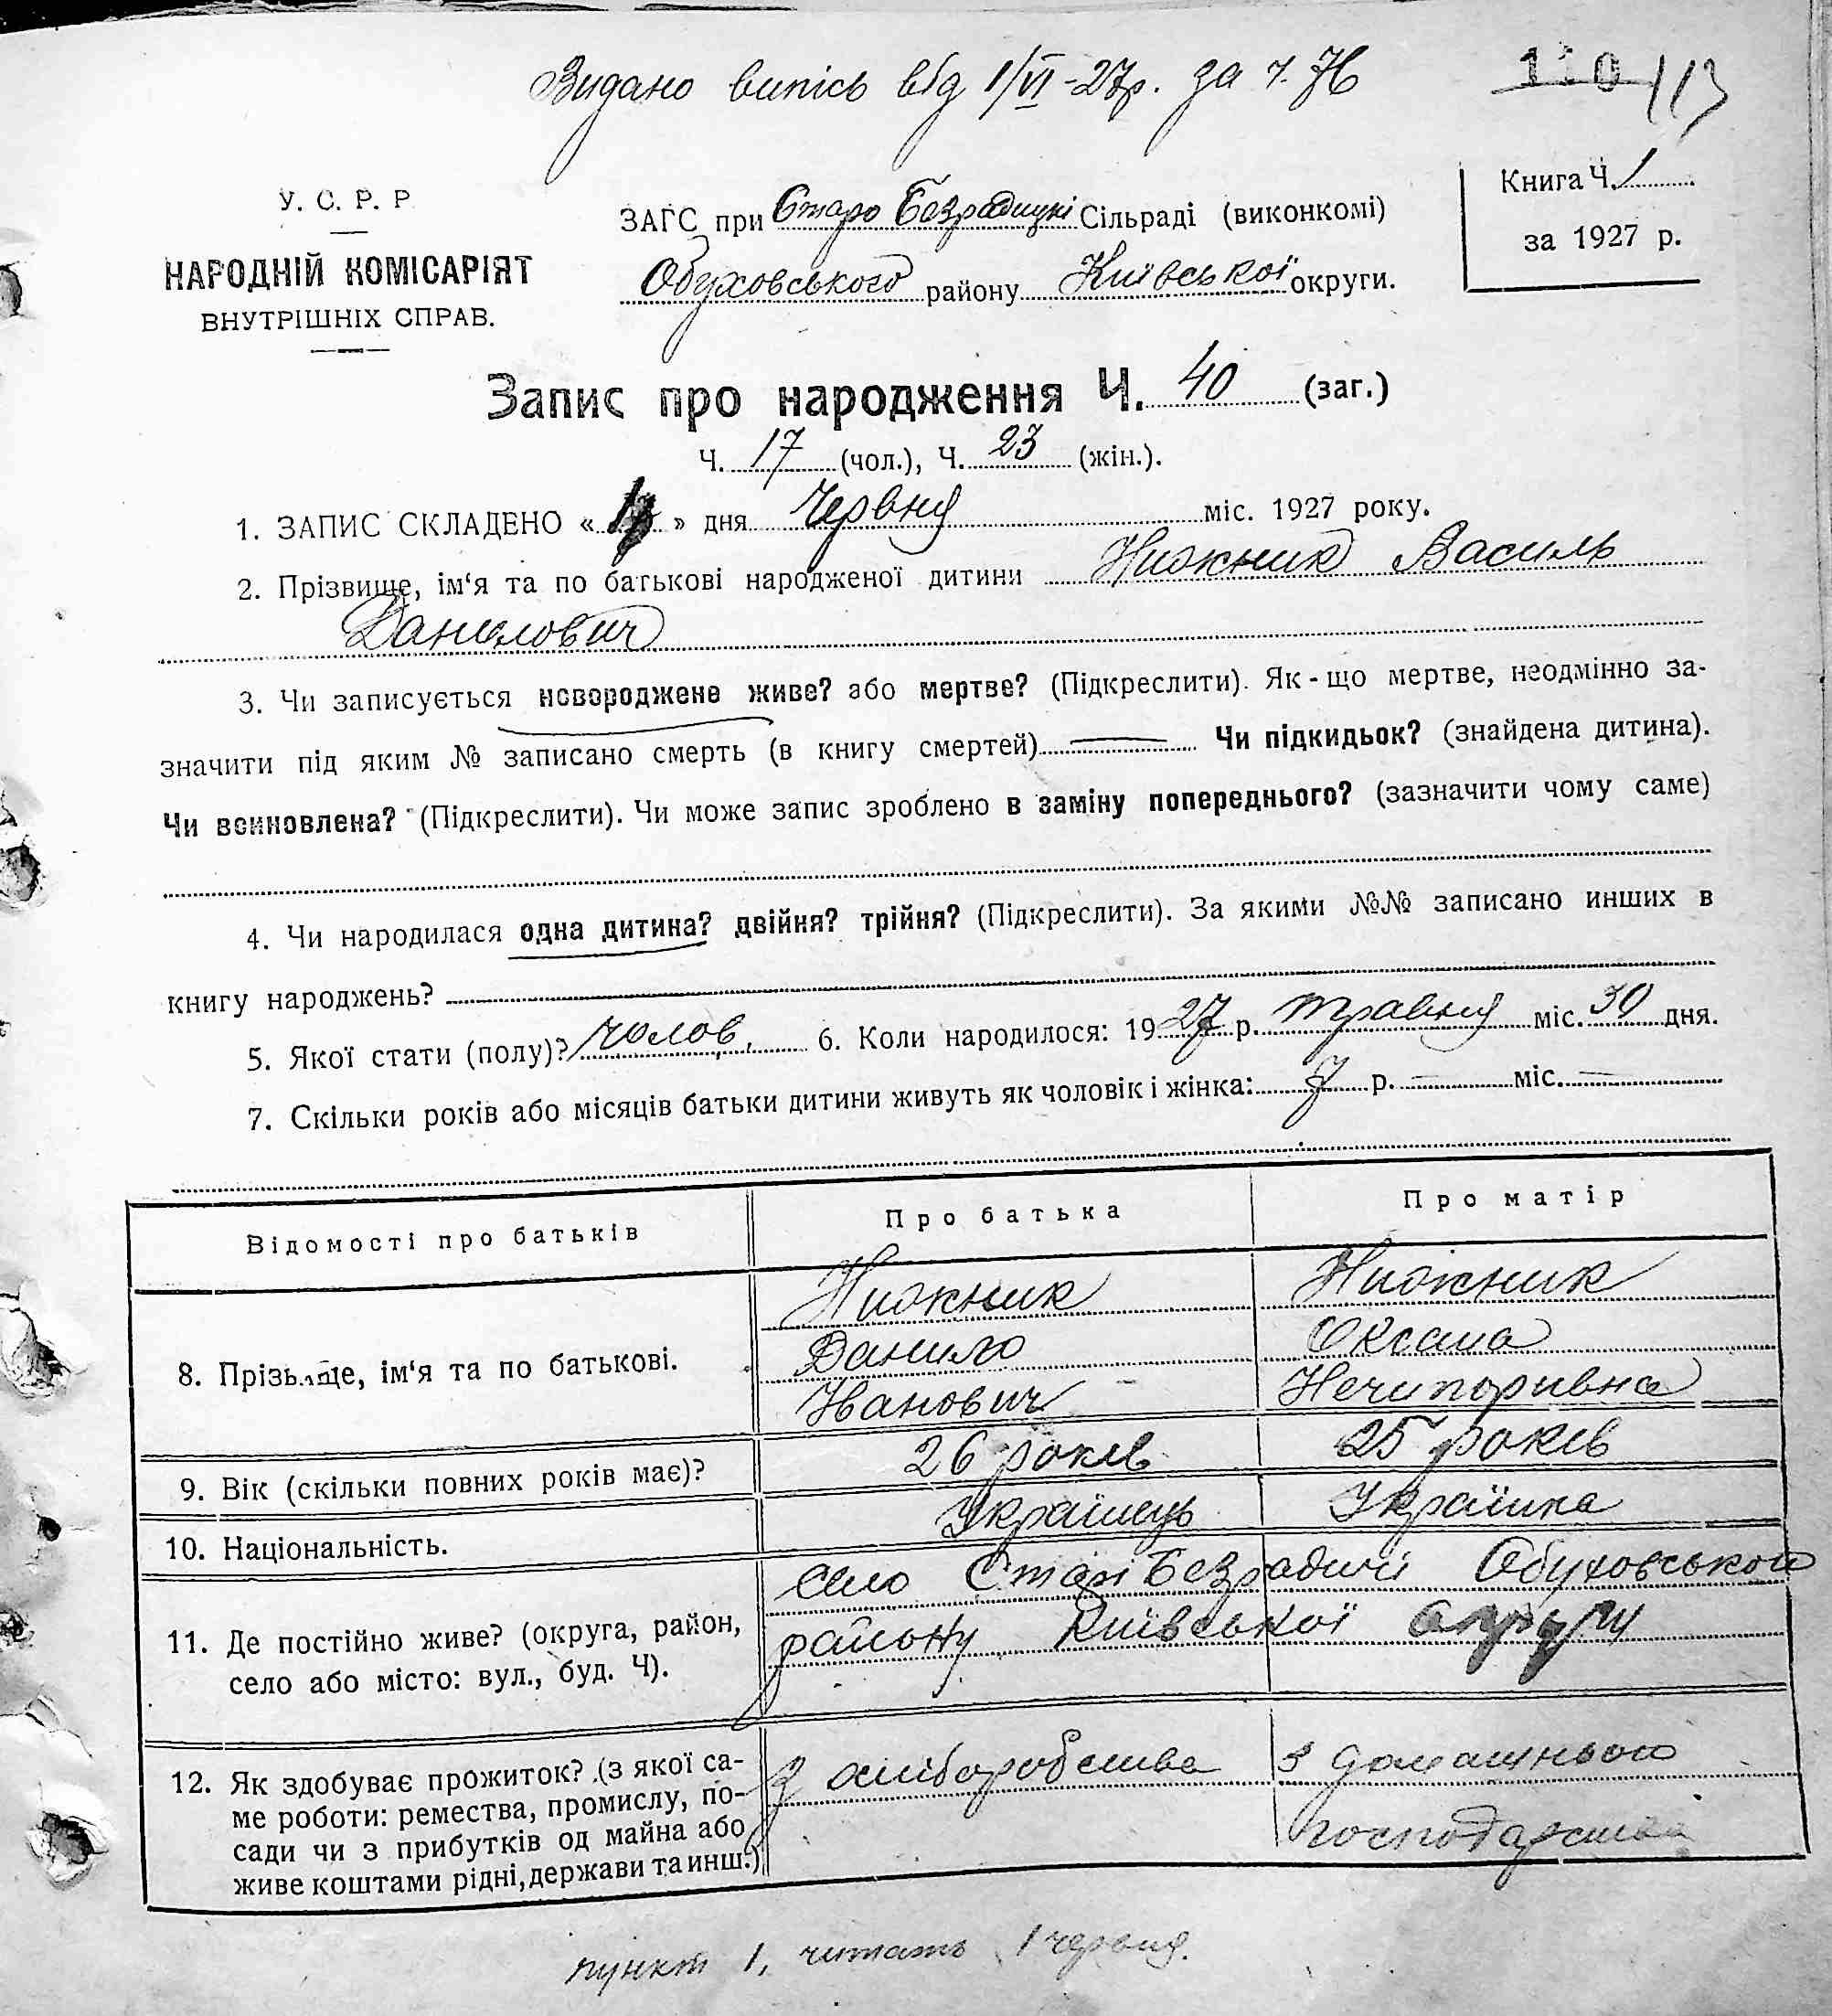 Видано випісь від 1/VI-27р. за ч. 76
110 113
У. С. Р. Р
НАРОДНІЙ КОМІСАРІЯТ
ВНУТРІШНІХ СПРАВ.
ЗАГС при Старо Безрадицкі Сільраді (виконкомі)
Обуховського району Київської округи.
Книга Ч. 1
за 1927 р.
Запис про народження Ч. 40 (заг.)
Ч. 17 (чол.), Ч. 23 (жін.).
1. ЗАПИС СКЛАДЕНО « » дня Червня міс. 1927 року.
2. Прізвище, ім‘я та по батькові народженої дитини Нижник Василь
Данилович
3. Чи записується новороджене живе? або мертве? (Підкреслити). Як-що мертве, неодмінно за-
значити під яким № записано смерть (в книгу смертей) — Чи підкидьок? (знайдена дитина).
Чи всиновлена? (Підкреслити). Чи може запис зроблено в заміну попереднього? (зазначити чому саме)
4. Чи народилася одна дитина? двійня? трійня? (Підкреслити). За якими №№ записано инших в
книгу народжень?
5. Якої стати (полу)? чолов. 6. Коли народилося: 1927 р. травня міс. 30 дня.
7. Скільки років або місяців батьки дитини живуть як чоловік і жінка: 7 р. — міс. —
Відомості про батьків Про батька Про матір
8. Прізвище, ім‘я та по батькові. Нижник Нижник
Данило Оксана
Иванович Нечипоривна
9. Вік (скільки повних років має)? 26 років 25 років
10. Національність. Українець Українка
11. Де постійно живе? (округа, район, село або місто: вул., буд. Ч). село Старі Безрадичі Обуховської
району Київської округи
12. Як здобуває прожиток? (з якої са- з хліборобства з домашнього
ме роботи: ремества, промислу, по- господарства
сади чи з прибутків од майна або
живе коштами рідні, держави та инш.)
пункт 1, читать 1 червня.